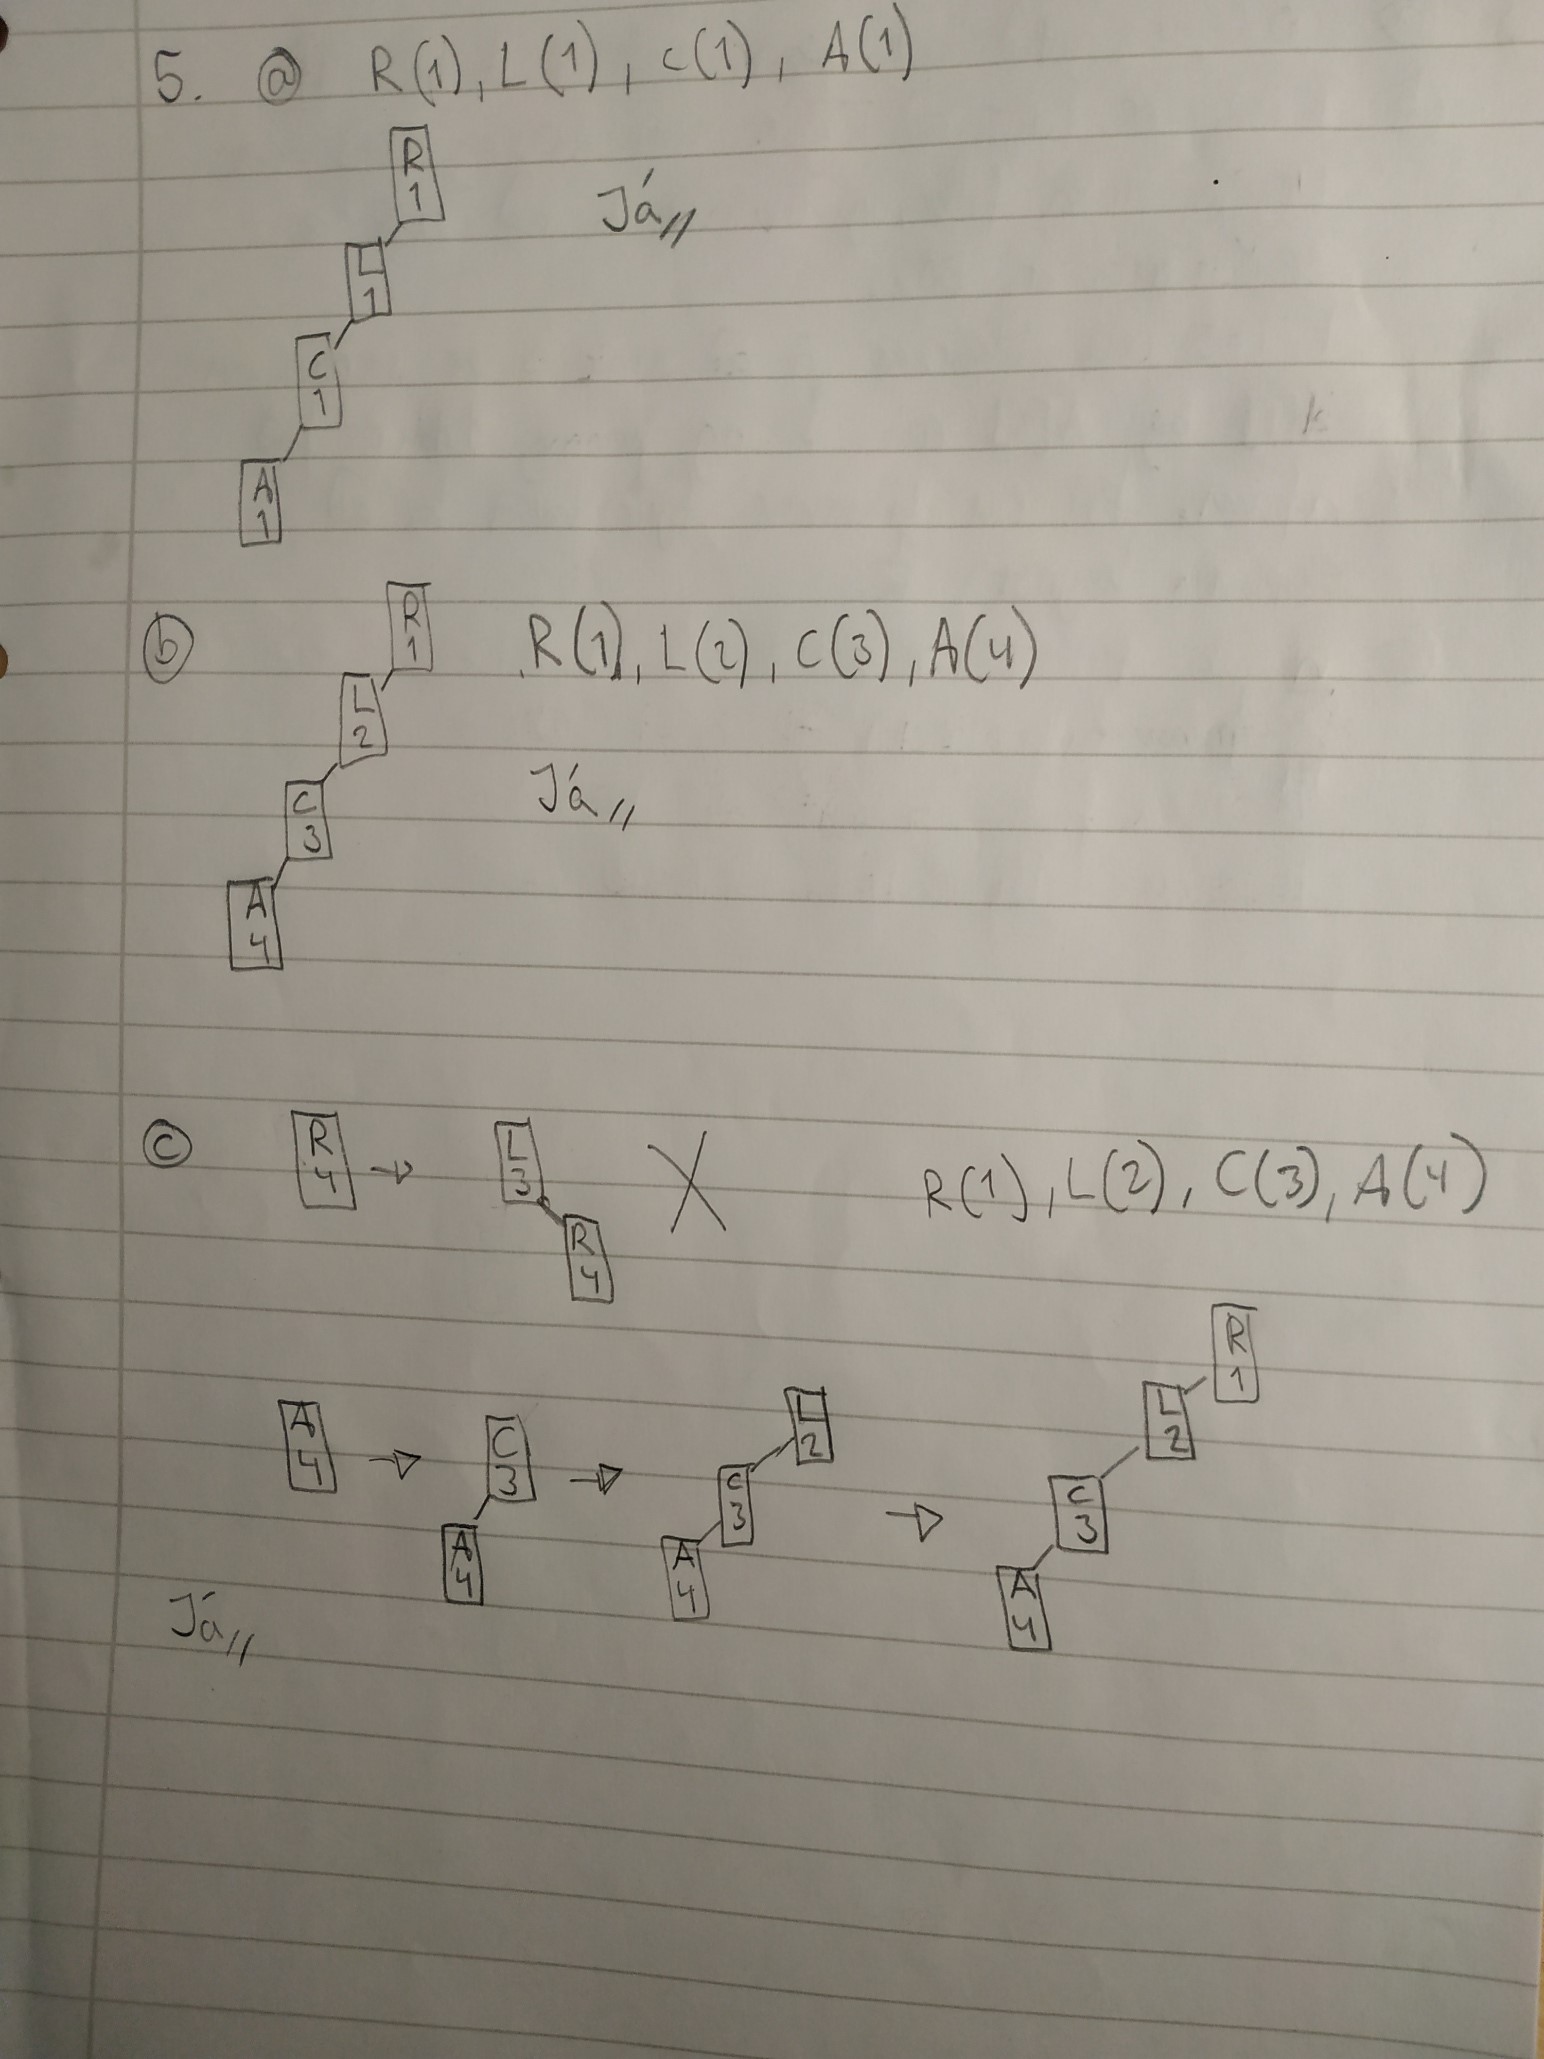 5. ⓐ R(1), L(1), C(1), A(1)
R
1
Já //
L
1
C
1
A
1
ⓑ
R
1
R(1), L(2), C(3), A(4)
L
2
Já //
C
3
A
4
ⓒ
R
4
→
L
3
R
4
X
R(1), L(2), C(3), A(4)
A
4
→
C
3
A
4
→
L
2
C
3
A
4
→
R
1
L
2
C
3
A
4
Já //